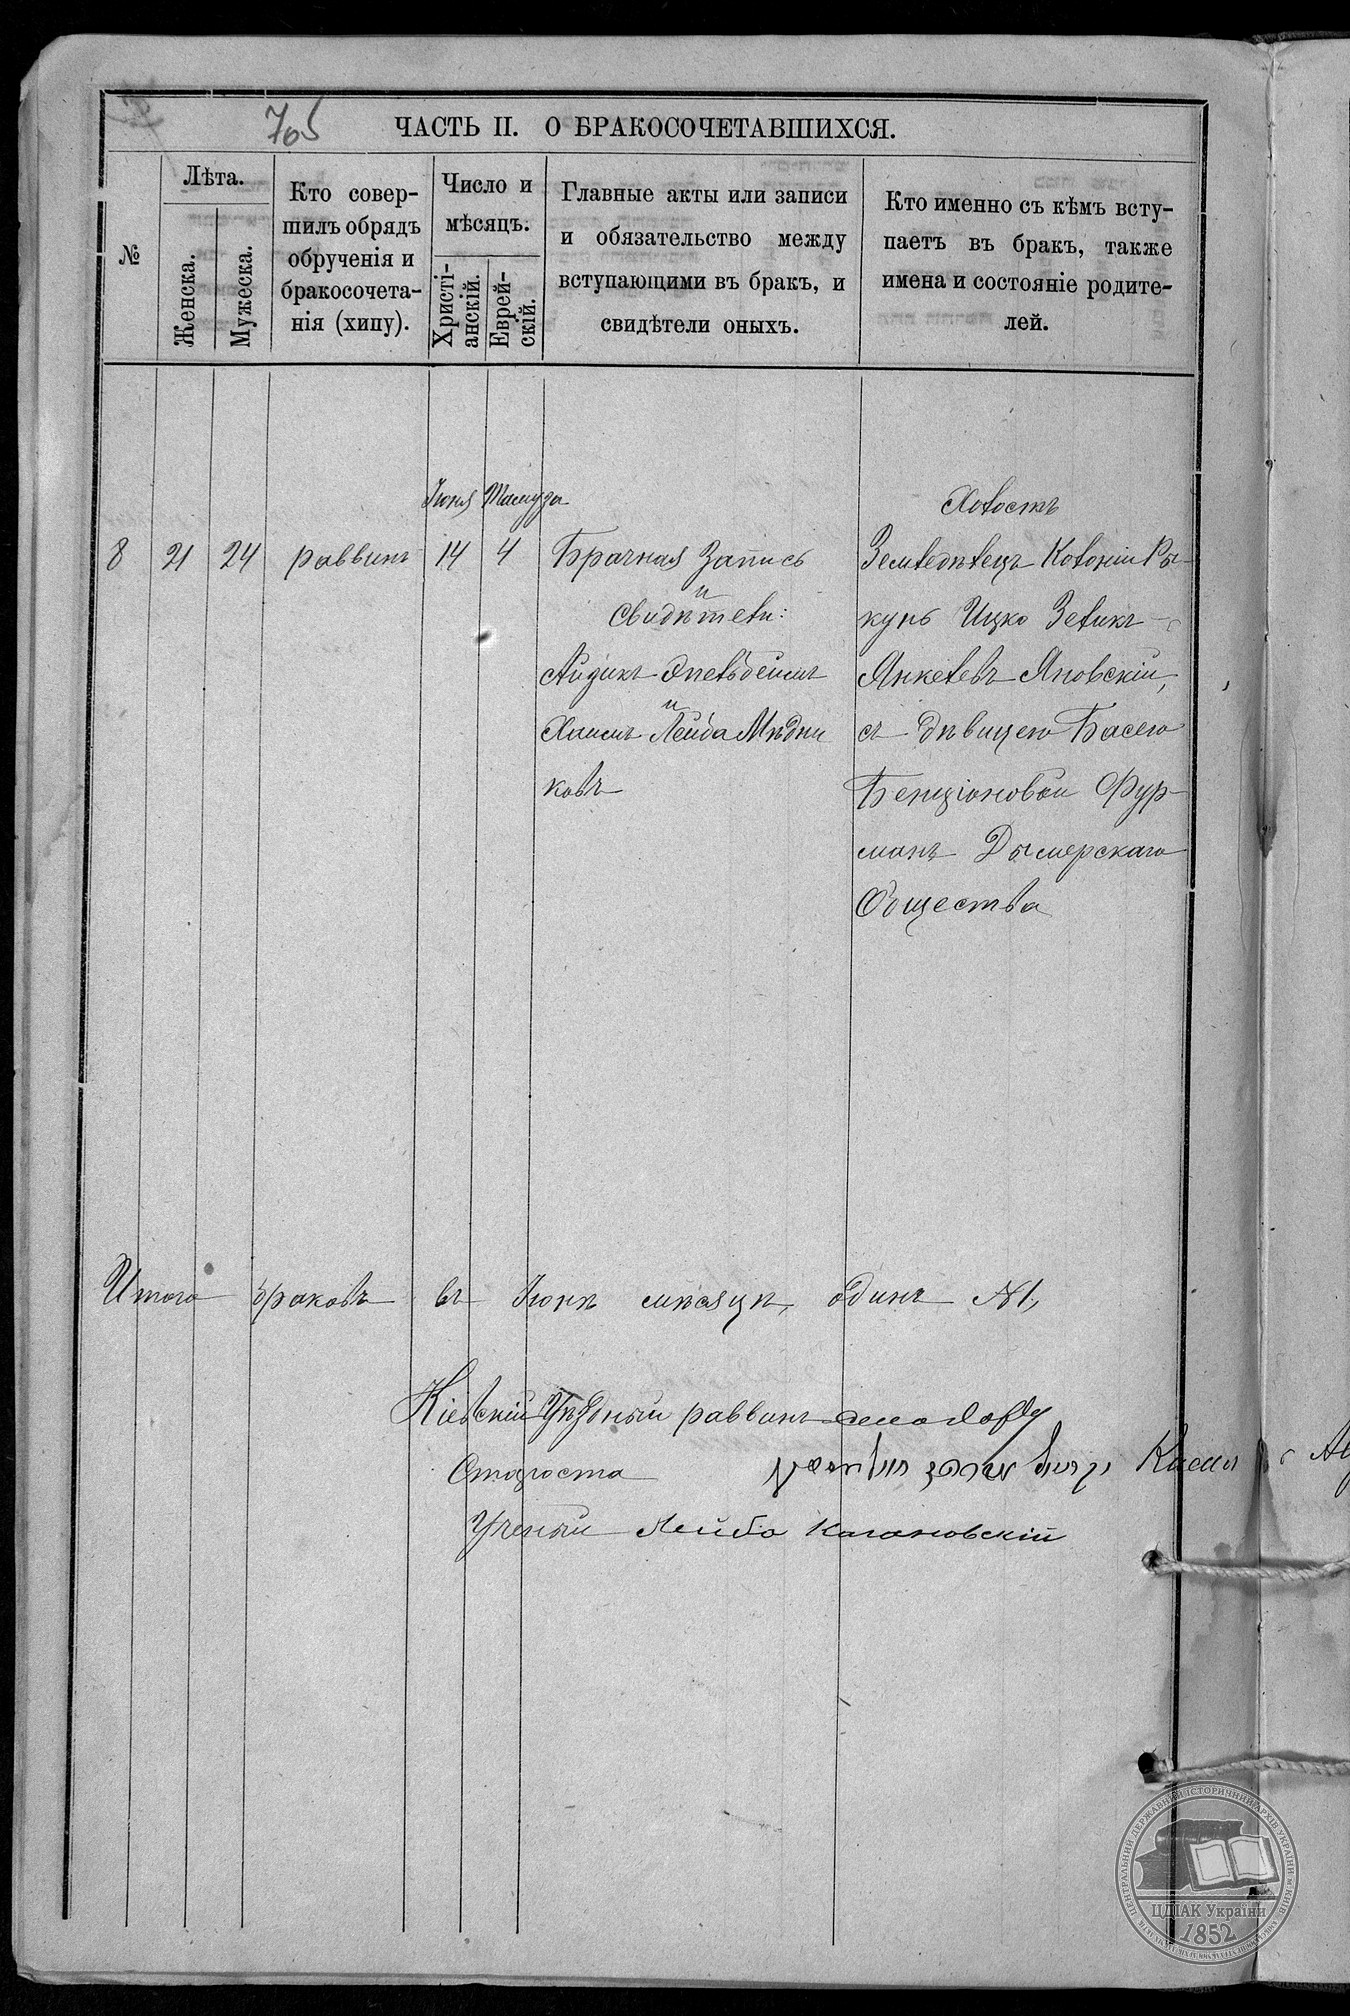 705
ЧАСТЬ II. О БРАКОСОЧЕТАВШИХСЯ.
№
Лѣта.
Женска.
Мужеска.
Кто совер-
шилъ обрядъ
обрученія и
бракосочета-
нія (хипу).
Число и
мѣсяцъ.
Христі-
анскій.
Еврей-
скій.
Главные акты или записи
и обязательство между
вступающими въ бракъ, и
свидѣтели оныхъ.
Кто именно съ кѣмъ всту-
паетъ въ бракъ, также
имена и состояніе родите-
лей.
Іюня
Тамуза
8
21
24
раввинъ
14
4
Брачная Запись
и
Свидѣтели:
Айзикъ Эпельбеймъ
и
Хаимъ Лейба Мѣдни
ковъ
Холостъ
Земледѣлецъ Колоніи Ры-
кунь Ицко Зеликъ
Янкелевъ Яновскій,
съ дѣвицею Басею
Бенціоновой Фур-
манъ Дымерскаго
Общества
Итого браковъ въ Іюнѣ мѣсяцѣ, одинъ №1,
Кіевскій Уѣздный раввинъ
Староста
Ученый Лейба Кагановскій
ЦЕНТРАЛЬНИЙ ДЕРЖАВНИЙ ІСТОРИЧНИЙ АРХІВ УКРАЇНИ м. КИЇВ
ЦДІАК України
1852